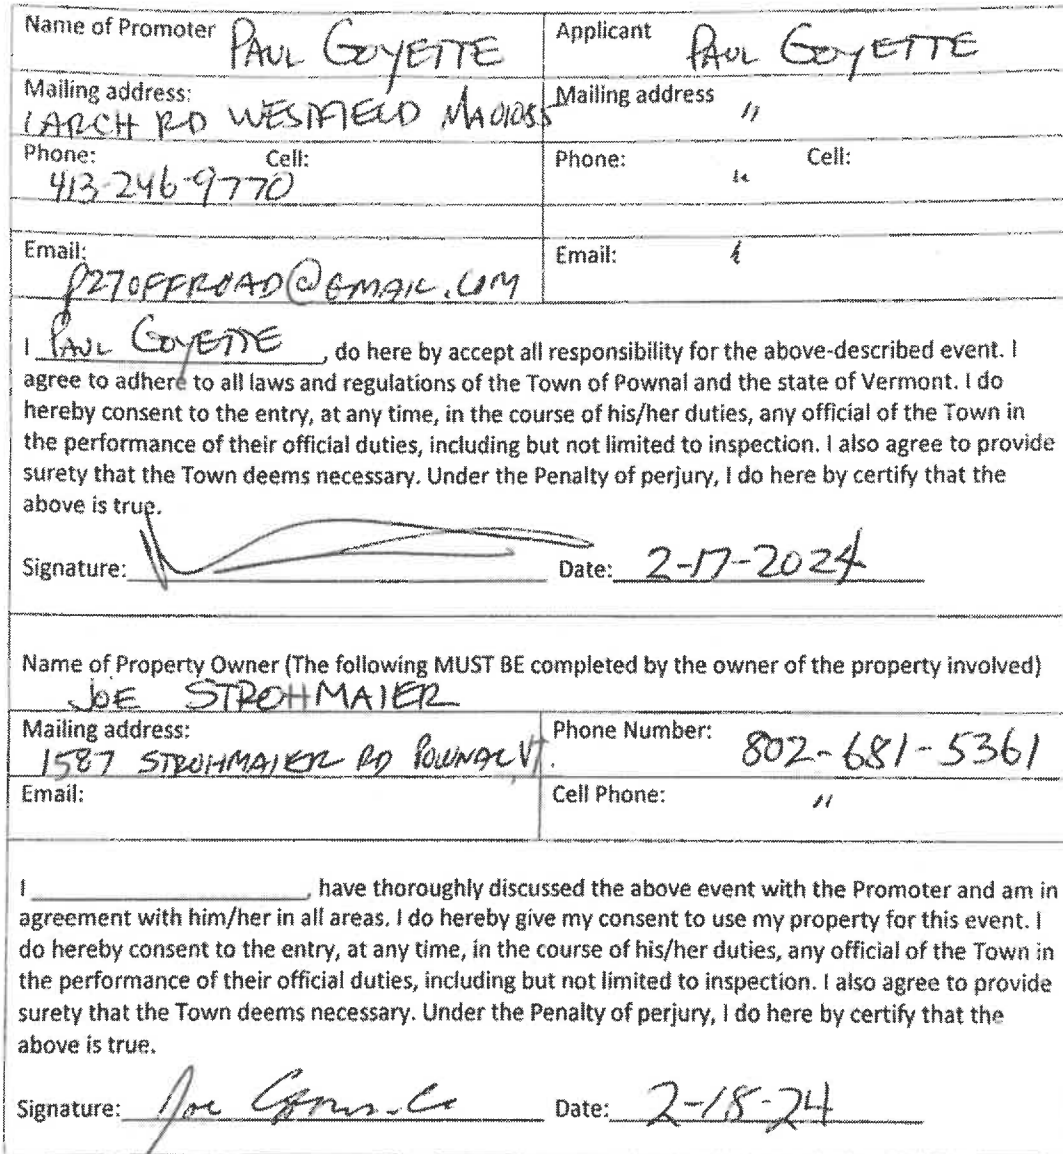 Name of Promoter PAUL GOYETTE Applicant PAUL GOYETTE
Mailing address: Mailing address "
1 ARCH RD WESTFIELD MA 01085
Phone: Cell: Phone: " Cell:
413-246-9770
Email: Email: "
P27OFFROAD@GMAIL.COM
I PAUL GOYETTE, do here by accept all responsibility for the above-described event. I
agree to adhere to all laws and regulations of the Town of Pownal and the state of Vermont. I do
hereby consent to the entry, at any time, in the course of his/her duties, any official of the Town in
the performance of their official duties, including but not limited to inspection. I also agree to provide
surety that the Town deems necessary. Under the Penalty of perjury, I do here by certify that the
above is true.
Signature: Date: 2-17-2024
Name of Property Owner (The following MUST BE completed by the owner of the property involved)
JOE STROHMAIER
Mailing address: Phone Number: 802-681-5361
1587 STROHMAIER RD POWNAL VT.
Email: Cell Phone: "
I ____________________, have thoroughly discussed the above event with the Promoter and am in
agreement with him/her in all areas. I do hereby give my consent to use my property for this event. I
do hereby consent to the entry, at any time, in the course of his/her duties, any official of the Town in
the performance of their official duties, including but not limited to inspection. I also agree to provide
surety that the Town deems necessary. Under the Penalty of perjury, I do here by certify that the
above is true.
Signature: Joe Date: 2-18-24